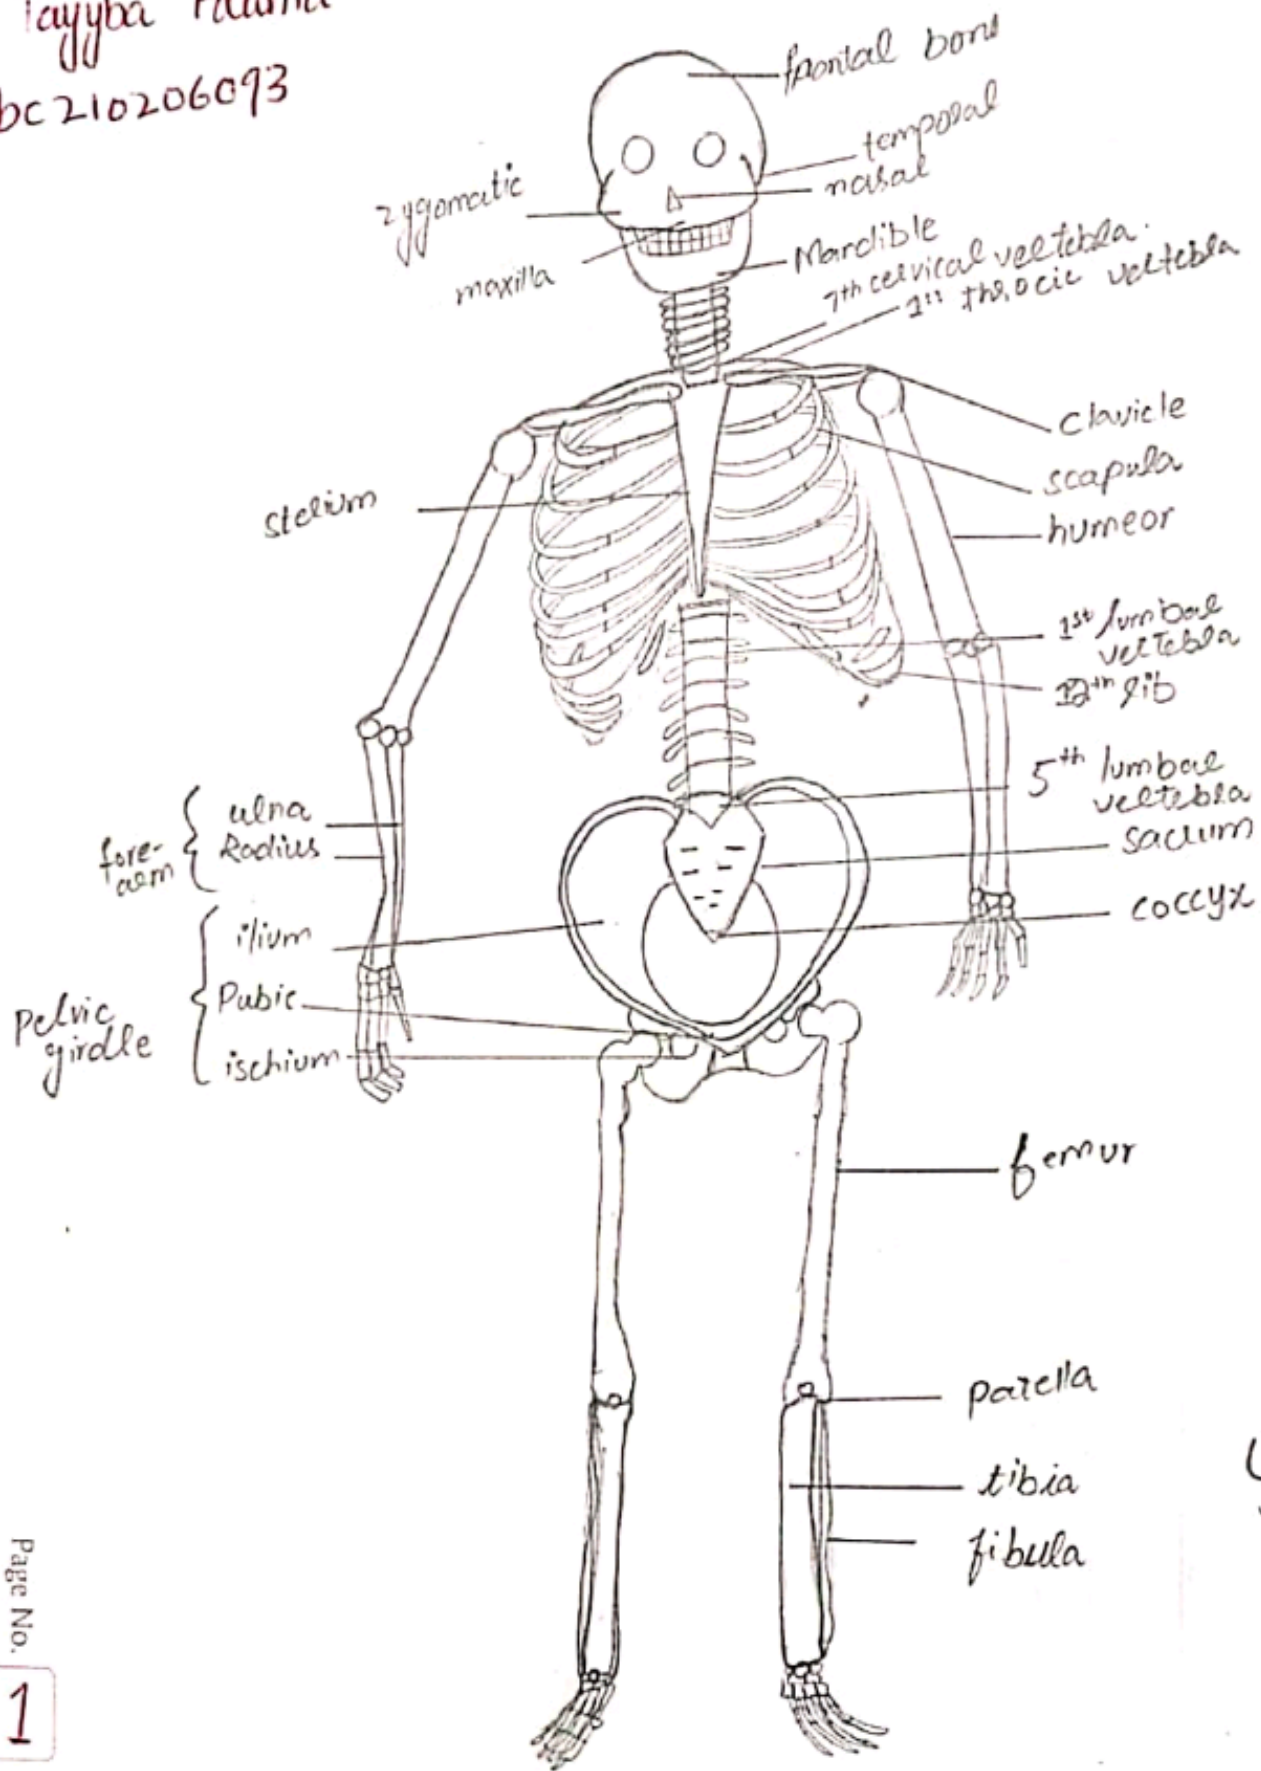 Tayyba
bc210206093
frontal bone
temporal
nasal
zygomatic
maxilla
Mardible
7th cervical veltebla.
1st throcic veltebla
clavicle
scapula
humeor
stelium
1st lumbal
veltebla
12th rib
5th lumbal
veltebla
sacrum
coccyx
ulna
Radius
fore-
arm
ilium
Pubic
ischium
Pelvic
girdle
femur
patella
tibia
fibula
Page No.
1